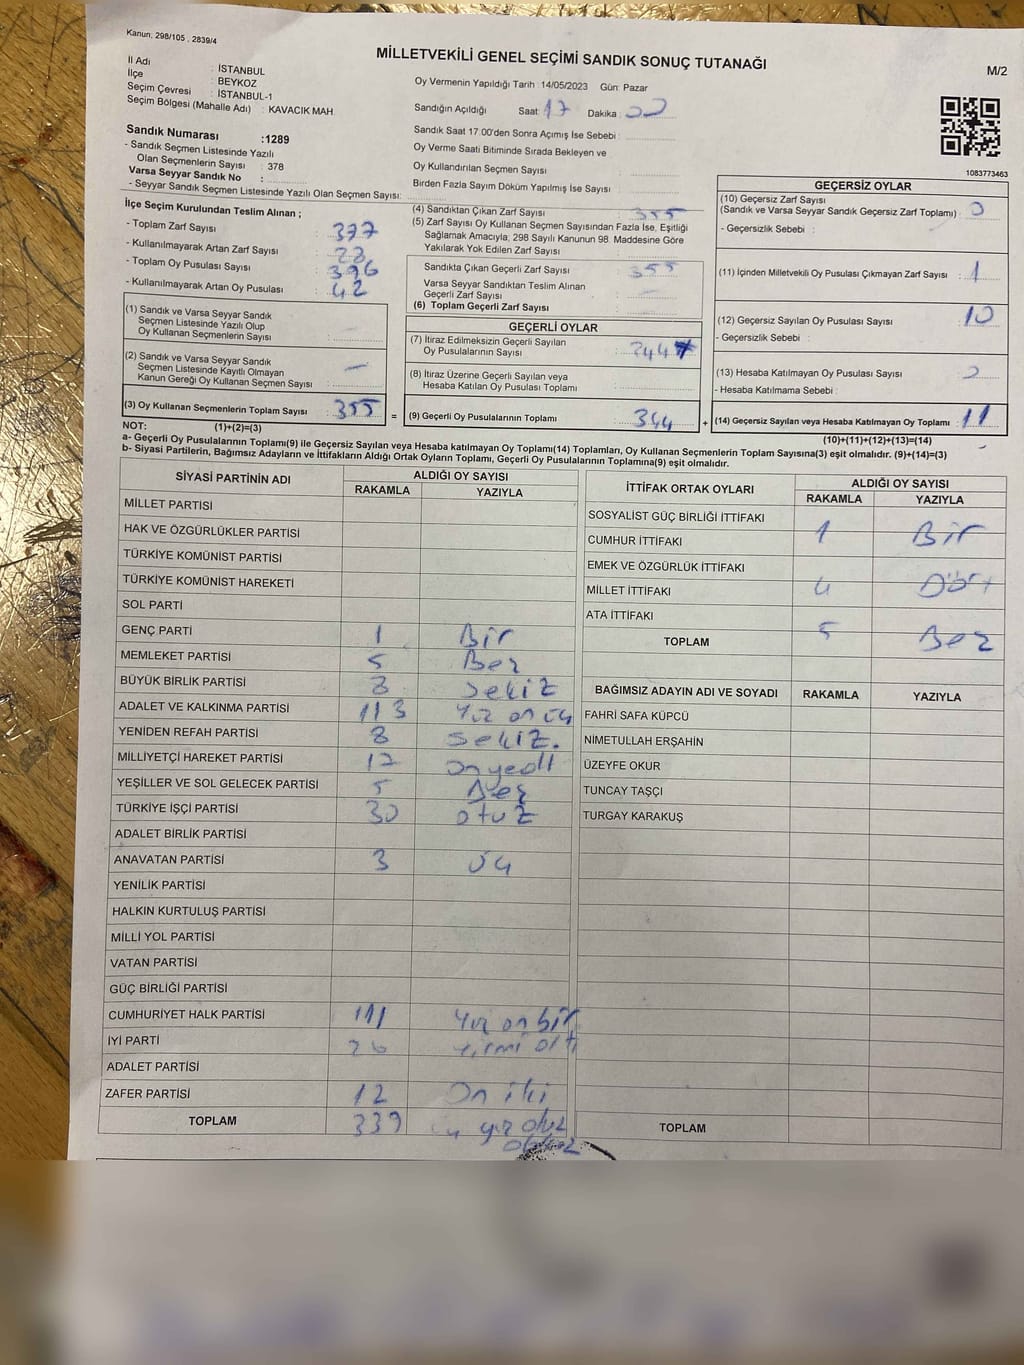 Kanun: 298/105 , 2839/4
MİLLETVEKİLİ GENEL SEÇİMİ SANDIK SONUÇ TUTANAĞI
M/2
İl Adı : İSTANBUL
İlçe : BEYKOZ
Seçim Çevresi : İSTANBUL-1
Seçim Bölgesi (Mahalle Adı) : KAVACIK MAH
Sandık Numarası :1289
- Sandık Seçmen Listesinde Yazılı
Olan Seçmenlerin Sayısı : 378
Varsa Seyyar Sandık No :
- Seyyar Sandık Seçmen Listesinde Yazılı Olan Seçmen Sayısı:
Oy Vermenin Yapıldığı Tarih : 14/05/2023 Gün: Pazar
Sandığın Açıldığı Saat : 17 Dakika :
Sandık Saat 17.00'den Sonra Açımış İse Sebebi :
Oy Verme Saati Bitiminde Sırada Bekleyen ve
Oy Kullandırılan Seçmen Sayısı :
Birden Fazla Sayım Döküm Yapılmış İse Sayısı :
1083773463
İlçe Seçim Kurulundan Teslim Alınan ;
- Toplam Zarf Sayısı : 377
- Kullanılmayarak Artan Zarf Sayısı :
- Toplam Oy Pusulası Sayısı : 396
- Kullanılmayarak Artan Oy Pusulası : 42
(1) Sandık ve Varsa Seyyar Sandık
Seçmen Listesinde Yazılı Olup
Oy Kullanan Seçmenlerin Sayısı :
(2) Sandık ve Varsa Seyyar Sandık
Seçmen Listesinde Kayıtlı Olmayan
Kanun Gereği Oy Kullanan Seçmen Sayısı : –
(3) Oy Kullanan Seçmenlerin Toplam Sayısı : 355
(1)+(2)=(3)
(4) Sandıktan Çıkan Zarf Sayısı : 355
(5) Zarf Sayısı Oy Kullanan Seçmen Sayısından Fazla İse, Eşitliği
Sağlamak Amacıyla, 298 Sayılı Kanunun 98. Maddesine Göre
Yakılarak Yok Edilen Zarf Sayısı :
Sandıkta Çıkan Geçerli Zarf Sayısı : 355
Varsa Seyyar Sandıktan Teslim Alınan
Geçerli Zarf Sayısı :
(6) Toplam Geçerli Zarf Sayısı :
GEÇERLİ OYLAR
(7) İtiraz Edilmeksizin Geçerli Sayılan
Oy Pusulalarının Sayısı :
(8) İtiraz Üzerine Geçerli Sayılan veya
Hesaba Katılan Oy Pusulası Toplamı :
= (9) Geçerli Oy Pusulalarının Toplamı : 344 +
GEÇERSİZ OYLAR
(10) Geçersiz Zarf Sayısı
(Sandık ve Varsa Seyyar Sandık Geçersiz Zarf Toplamı) :
- Geçersizlik Sebebi :
(11) İçinden Milletvekili Oy Pusulası Çıkmayan Zarf Sayısı : 1
(12) Geçersiz Sayılan Oy Pusulası Sayısı : 10
- Geçersizlik Sebebi :
(13) Hesaba Katılmayan Oy Pusulası Sayısı :
- Hesaba Katılmama Sebebi :
(14) Geçersiz Sayılan veya Hesaba Katılmayan Oy Toplamı : 11
(10)+(11)+(12)+(13)=(14)
NOT:
a- Geçerli Oy Pusulalarının Toplamı(9) ile Geçersiz Sayılan veya Hesaba katılmayan Oy Toplamı(14) Toplamları, Oy Kullanan Seçmenlerin Toplam Sayısına(3) eşit olmalıdır. (9)+(14)=(3)
b- Siyasi Partilerin, Bağımsız Adayların ve İttifakların Aldığı Ortak Oyların Toplamı, Geçerli Oy Pusulalarının Toplamına(9) eşit olmalıdır.
SİYASİ PARTİNİN ADI ALDIĞI OY SAYISI
RAKAMLA YAZIYLA
MİLLET PARTİSİ
HAK VE ÖZGÜRLÜKLER PARTİSİ
TÜRKİYE KOMÜNİST PARTİSİ
TÜRKİYE KOMÜNİST HAREKETİ
SOL PARTİ
GENÇ PARTİ 1 Bir
MEMLEKET PARTİSİ 5 Beş
BÜYÜK BİRLİK PARTİSİ 8 Sekiz
ADALET VE KALKINMA PARTİSİ 113 Yüz on üç
YENİDEN REFAH PARTİSİ 8 sekiz.
MİLLİYETÇİ HAREKET PARTİSİ 17 onyedi
YEŞİLLER VE SOL GELECEK PARTİSİ 5 Beş
TÜRKİYE İŞÇİ PARTİSİ 30 otuz
ADALET BİRLİK PARTİSİ
ANAVATAN PARTİSİ 3 üç
YENİLİK PARTİSİ
HALKIN KURTULUŞ PARTİSİ
MİLLİ YOL PARTİSİ
VATAN PARTİSİ
GÜÇ BİRLİĞİ PARTİSİ
CUMHURİYET HALK PARTİSİ 111 Yüz on bir
İYİ PARTİ 26 yirmi altı
ADALET PARTİSİ
ZAFER PARTİSİ 12 On iki
TOPLAM 339 yüz otuz
dokuz
İTTİFAK ORTAK OYLARI ALDIĞI OY SAYISI
RAKAMLA YAZIYLA
SOSYALİST GÜÇ BİRLİĞİ İTTİFAKI
CUMHUR İTTİFAKI 1 Bir
EMEK VE ÖZGÜRLÜK İTTİFAKI
MİLLET İTTİFAKI 4 Dört
ATA İTTİFAKI
TOPLAM 5 Beş
BAĞIMSIZ ADAYIN ADI VE SOYADI RAKAMLA YAZIYLA
FAHRİ SAFA KÜPCÜ
NİMETULLAH ERŞAHİN
ÜZEYFE OKUR
TUNCAY TAŞÇI
TURGAY KARAKUŞ
TOPLAM